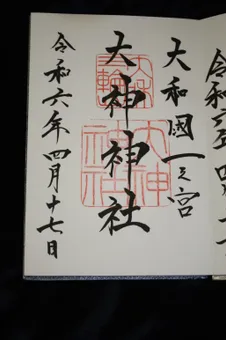 大和國一之宮
大神神社
三輪
大神
神社
令和六年四月十七日
令和六年四